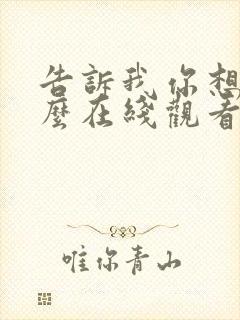 告訴我你想
麼在綫觀看
唯你青山